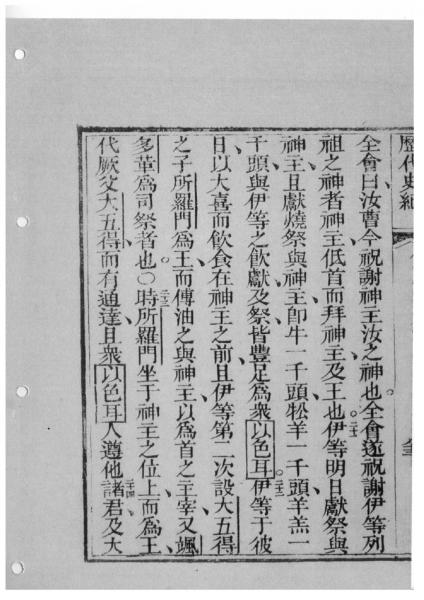 歷代史紀
全會曰汝曹今祝謝神主汝之神也。全會遂祝謝伊等列
祖之神者神主低首而拜神主及王也。二十一伊等明日獻祭與
神主且獻燒祭與神主即牛一千頭牡羊一千頭羊羔一
千頭與伊等之飲獻及祭皆豐足為眾以色耳。二十二伊等于彼
日以大喜而飲食在神主之前且伊等第二次設大五得
之子所羅門為王而傅油之與神主以為首之主宰又颯
多革為司祭者也。○二十三時所羅門坐于神主之位上而為王
代厥父大五得而有通達且眾以色耳人遵他二十四諸君及大